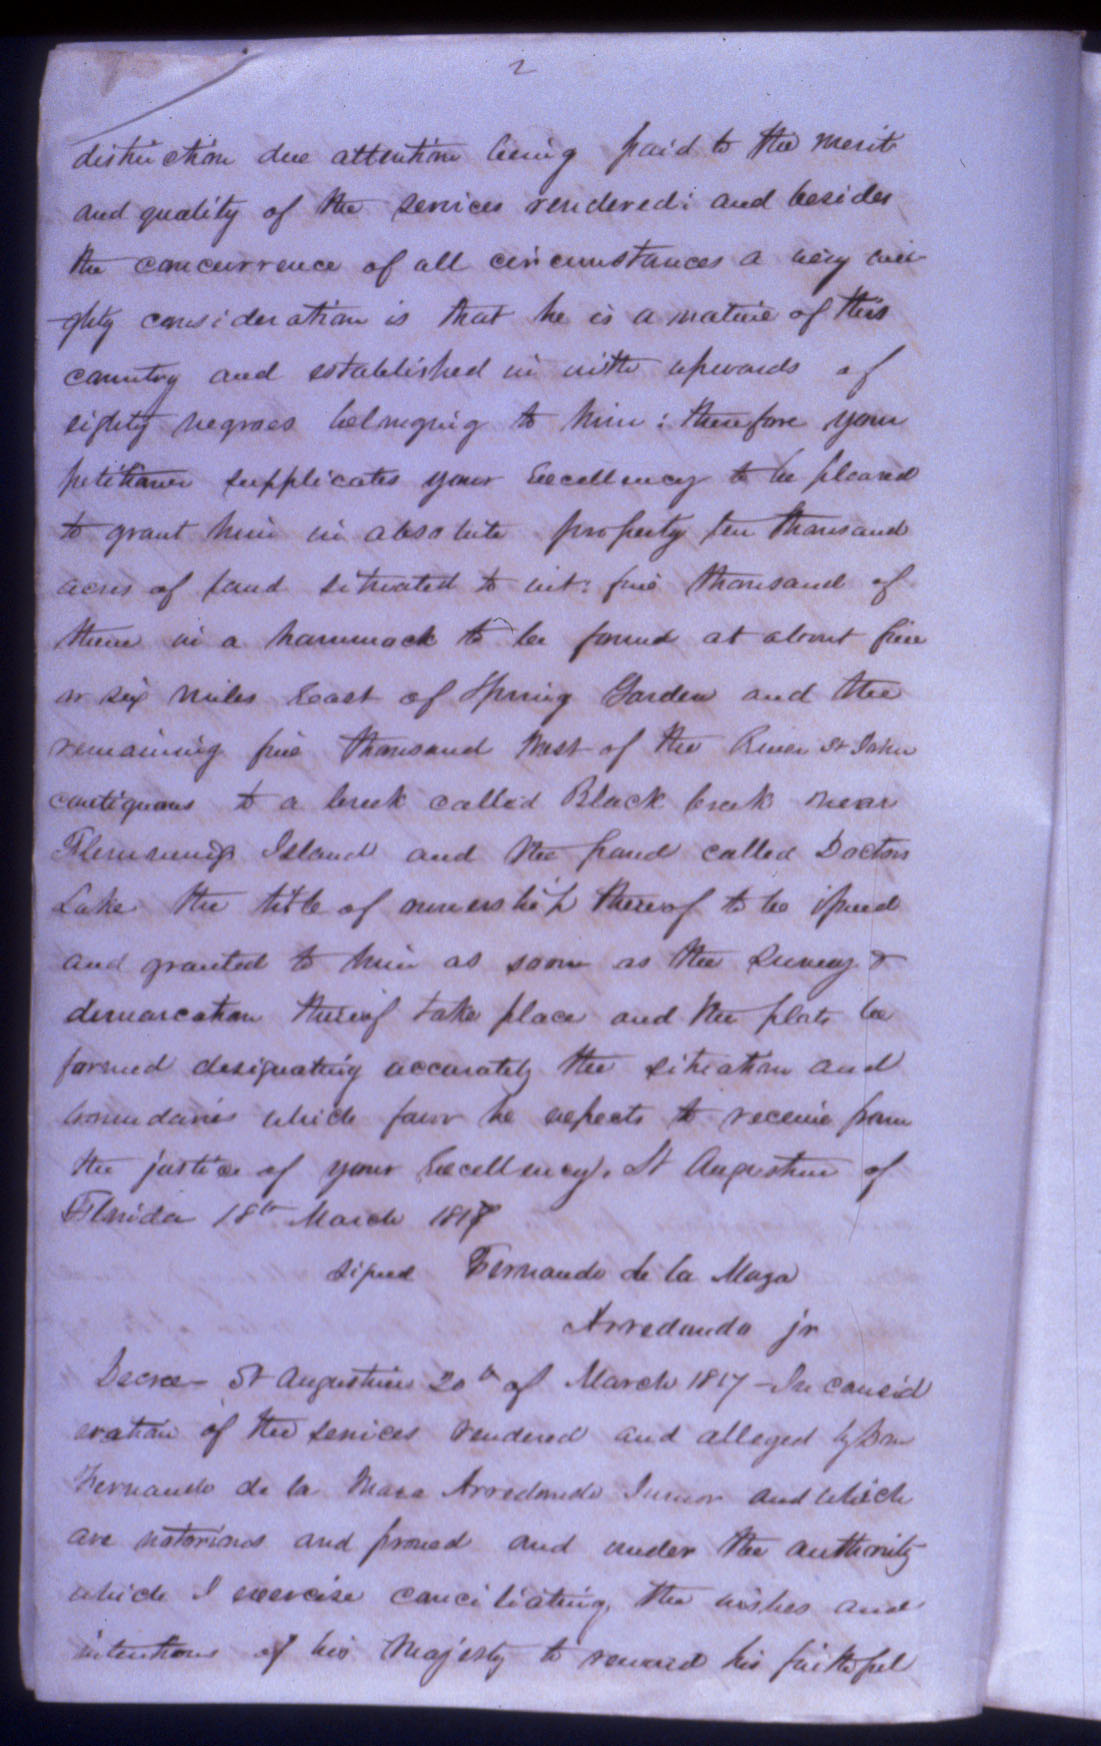 2
distinction due attention being paid to the merit
and quality of the services rendered: and besides
the concurrence of all circumstances a very wei-
ghty consideration is that he is a native of this
country and established in with upwards of
eighty negroes belonging to him: therefore your
petitioner supplicates your Excellency to be pleased
to grant him in absolute property ten thousand
acres of land situated to wit: five thousand of
them in a hammock to be found at about five
or six miles East of Spring Garden and the
remaining five thousand West of the River St John
contiguous to a creek called Black Creek near
Flemings Island and the pond called Doctors
Lake the title of ownership thereof to be issued
and granted to him as soon as the survey &
demarcation thereof take place and the plats be
formed designating accurately the situation and
boundaries which favor he expects to receive from
the justice of your Excellency. St Augustine of
Florida 18th March 1817
signed Fernando de la Maza
Arredondo jr
Decree - St Augustine 20th of March 1817 - In consid
eration of the services rendered and alleged by Don
Fernando de la Maza Arredondo Junior and which
are notorious and proved and under the authority
which I exercise conciliating, the wishes and
intentions of his Majesty to reward his faithful